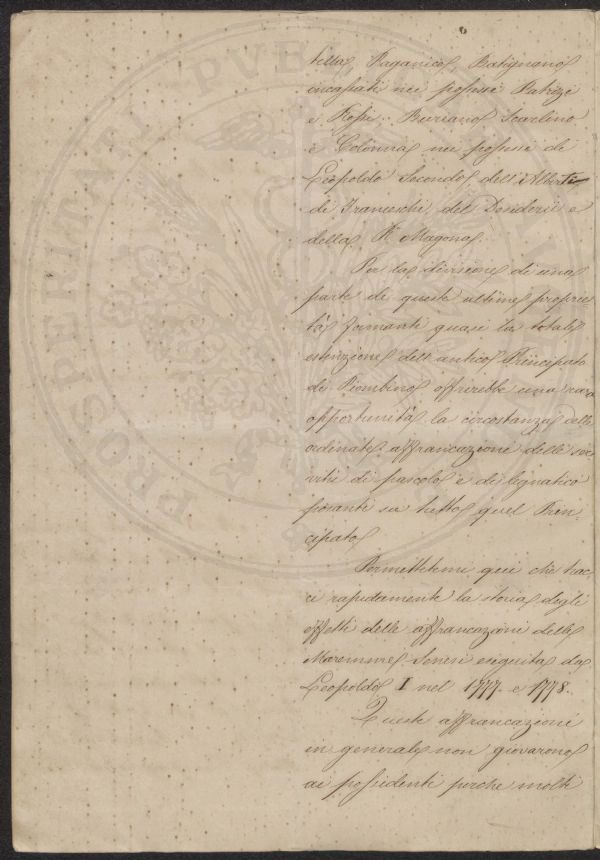 6
tella, Paganico, Batignano
incassati nei possessi Patrizi
e Rossi. Buriano, Scarlino
e Colonna nei possessi di
Leopoldo Secondo dell'Alberti
di Franceschi, del Desideri e
della R. Magona.
Per la divisione di una
parte di queste ultime proprie
tà formanti quasi la totale
estinzione dell'antico Principato
di Piombino offrirebbe una rara
opportunità la circostanza delle
ordinate affrancazioni delle ser
vitù di pascolo e di legnatico
posanti su tutto quel Prin-
cipato
Permettetemi qui che trac
ci rapidamente la storia degli
effetti delle affrancazioni delle
Maremme Senesi eseguita da
Leopoldo I nel 1777. e 1778.
Queste affrancazioni
in generale non giovarono
ai possidenti perche molti
PROSPERITATI PVBLICAE